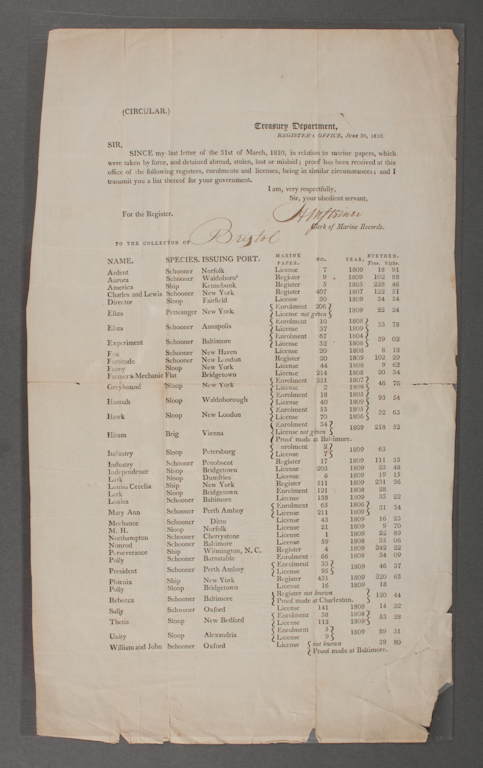 (CIRCULAR.)
Treasury Department,
REGISTER's OFFICE, June 30, 1810.
SIR,
SINCE my last letter of the 31st of March, 1810, in relation to marine papers, which
were taken by force, and detained abroad, stolen, lost or mislaid; proof has been received at this
office of the following registers, enrolments and licenses, being in similar circumstances; and I
transmit you a list thereof for your government.
I am, very respectfully,
Sir, your obedient servant,
For the Register.
Clerk of Marine Records.
TO THE COLLECTOR OF Bristol
NAME. SPECIES. ISSUING PORT. MARINE PAPER. NO. YEAR. BURTHEN. Tons. 95ths.
Ardent Schooner Norfolk License 7 1809 18 91
Aurora Schooner Waldoboro' Register 9 1809 102 88
America Ship Kennebunk Register 5 1805 238 46
Charles and Lewis Schooner New York Register 407 1807 122 51
Director Sloop Fairfield License 30 1809 54 54
Eliza Petteauger New York, Enrolment 206 License not given 1809 22 24
Eliza Schooner Annapolis Enrolment 10 1808 License 37 1809 35 78
Experiment Schooner Baltimore Enrolment 67 1804 License 52 1808 59 02
Fox Schooner New Haven License 20 1808 8 18
Fortitude Schooner New London Register 20 1809 102 29
Fanny Sloop New York License 44 1808 9 62
Farmer's Mechanic Flat Bridgetown License 214 1808 20 54
Greyhound Sloop New York Enrolment 251 1807 License 2 1809 46 76
Hannah Sloop Waldoborough Enrolment 18 1805 License 40 1809 93 54
Hawk Sloop New London Enrolment 53 1805 License 70 1806 32 63
Hiram Brig Vienna Enrolment 34 License not given Proof made at Baltimore. 1809 218 52
Industry Sloop Petersburg Enrolment 2 License 7 1809 63
Industry Schooner Penobscot Register 17 1809 111 55
Independence Sloop Bridgetown License 203 1809 23 48
Lark Sloop Dumfries License 6 1809 19 15
Louisa Cecelia Ship New York Register 311 1809 231 36
Lark Sloop Bridgetown Enrolment 121 1808 28
Louisa Schooner Baltimore License 138 1809 53 22
Mary Ann Schooner Perth Amboy Enrolment 65 1806 License 211 1809 31 34
Mechanic Schooner Ditto License 43 1809 16 23
M. H. Sloop Norfolk License 21 1809 9 70
Northampton Schooner Cherrystone License 1 1809 22 89
Nimrod Schooner Baltimore License 59 1808 35 06
Perseverance Ship Wilmington, N. C. Register 4 1808 342 22
Polly Schooner Barnstable Enrolment 66 1808 54 09
President Schooner Perth Amboy Enrolment 33 License 95 1809 46 37
Phœnix Ship New York Register 451 1809 220 63
Polly Sloop Bridgetown License 16 1809 18
Rebecca Schooner Baltimore Register not known Proof made at Charleston. 120 44
Sally Schooner Oxford License 141 1808 14 22
Thetis Sloop New Bedford Enrolment 38 1808 License 113 1809 53 28
Unity Sloop Alexandria Enrolment 3 License 9 1809 59 31
William and John Schooner Oxford License not known Proof made at Baltimore. 39 80